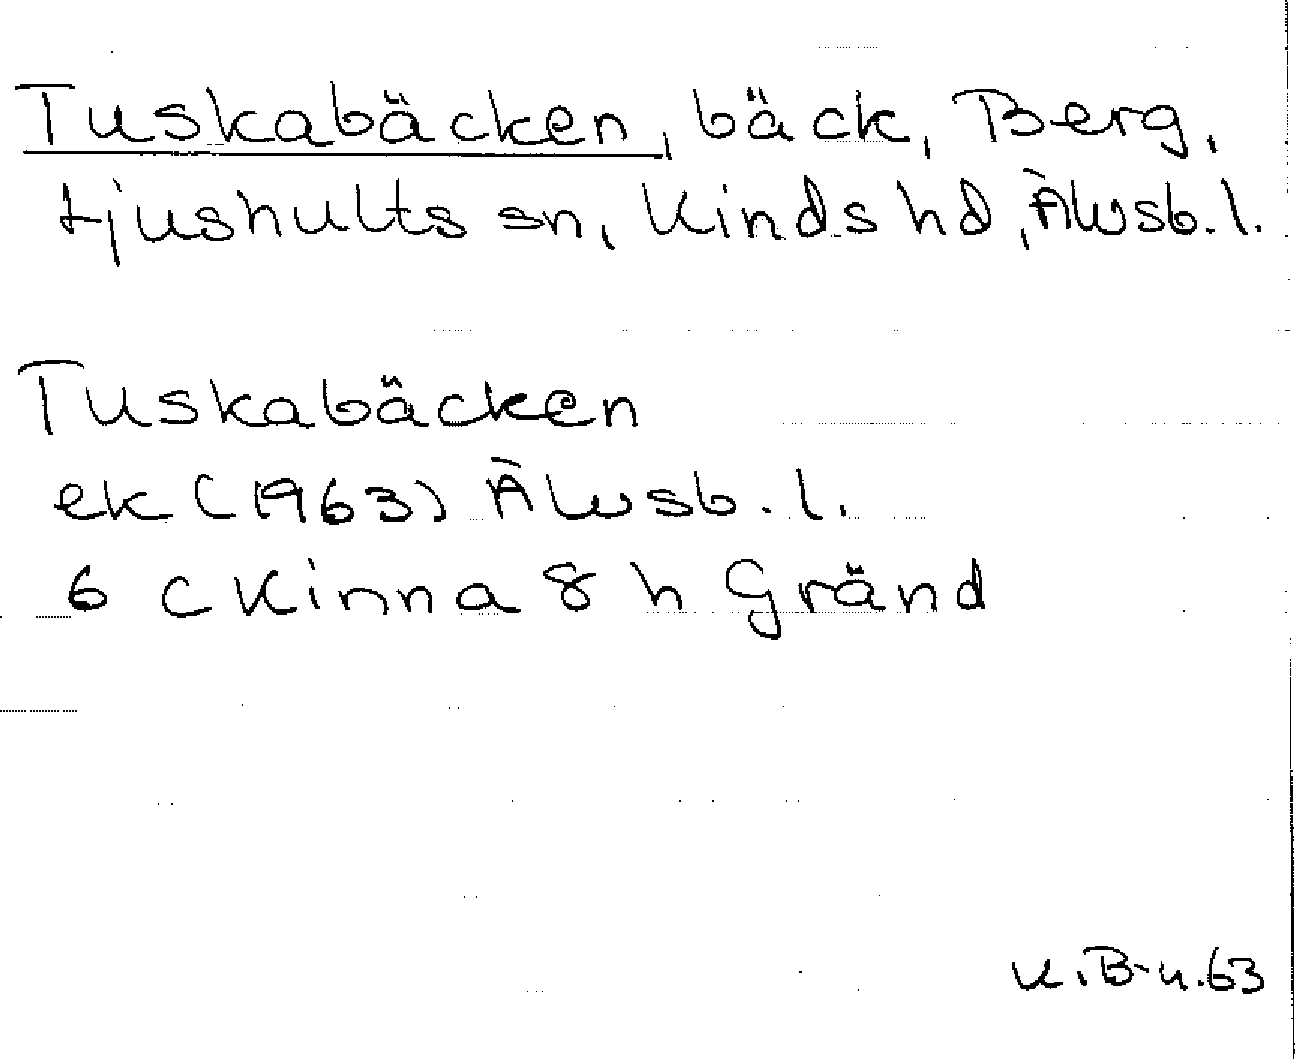 Tuskabäcken, bäck, Berg,
tjushults sn, Kinds hd, Älvsb. l.
Tuskabäcken
ek (1963) Älvsb. l.
6 C Kinna 8 h Gränd
K.B-n.63